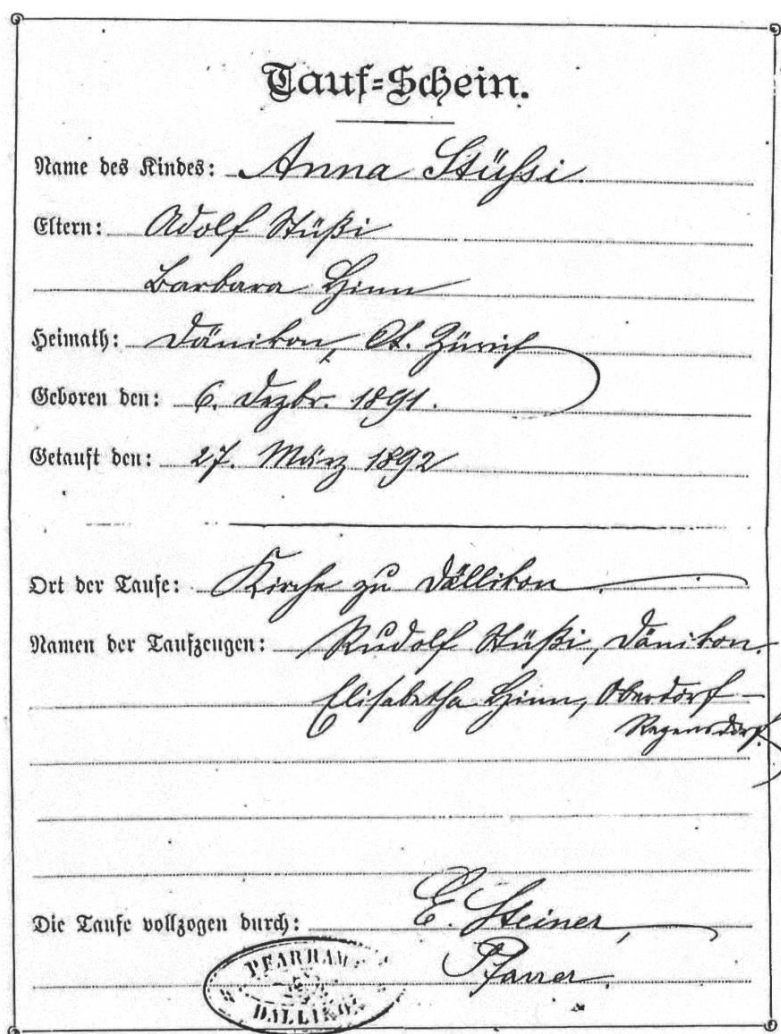 Tauf=Schein.
Name des Kindes: Anna Stüssi.
Eltern: Adolf Stüßi
Barbara Hinn
Heimath: Dänikon, Ct. Zürich
Geboren den: 6. Dezbr. 1891.
Getauft den: 27. März 1892
Ort der Taufe: Kirche zu Dällikon.
Namen der Taufzeugen: Rudolf Stüßi, Dänikon.
Elisabetha Hinn, Oberdorf-
Regensdorf.
Die Taufe vollzogen durch: E. Steiner,
Pfarrer.
PFARRAMT
DÄLLIKON